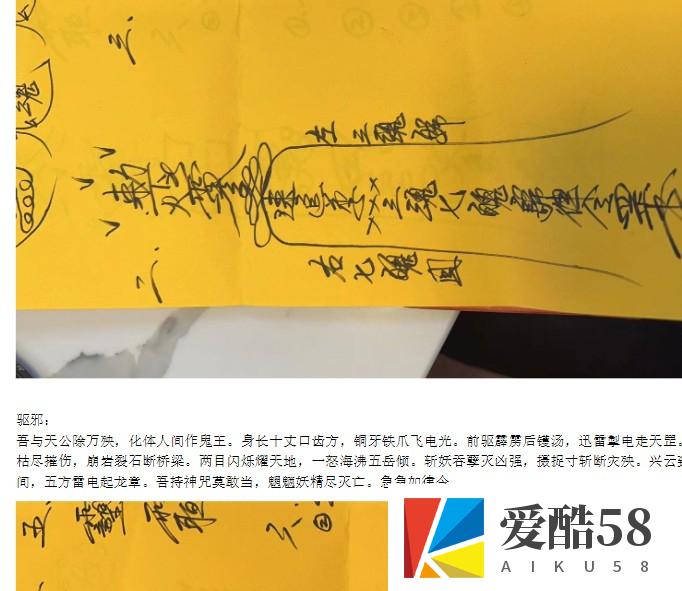 三、
魂
左三魂歸
敕
速追 三魂七魄歸 合
右七魄回
二、
驱邪：
吾与天公除万殃，化体人间作鬼王。身长十丈口齿方，铜牙铁爪飞电光。前驱霹雳后镬汤，迅雷掣电走天罡。
枯尽摧伤，崩岩裂石断桥梁。两目闪烁耀天地，一怒海沸五岳倾。斩妖吞孽灭凶强，摄捉寸斩断灾殃。兴云
间，五方雷电起龙章。吾持神咒莫敢当，魍魉妖精尽灭亡。急急如律令
五、
②
爱酷58
AIKU58